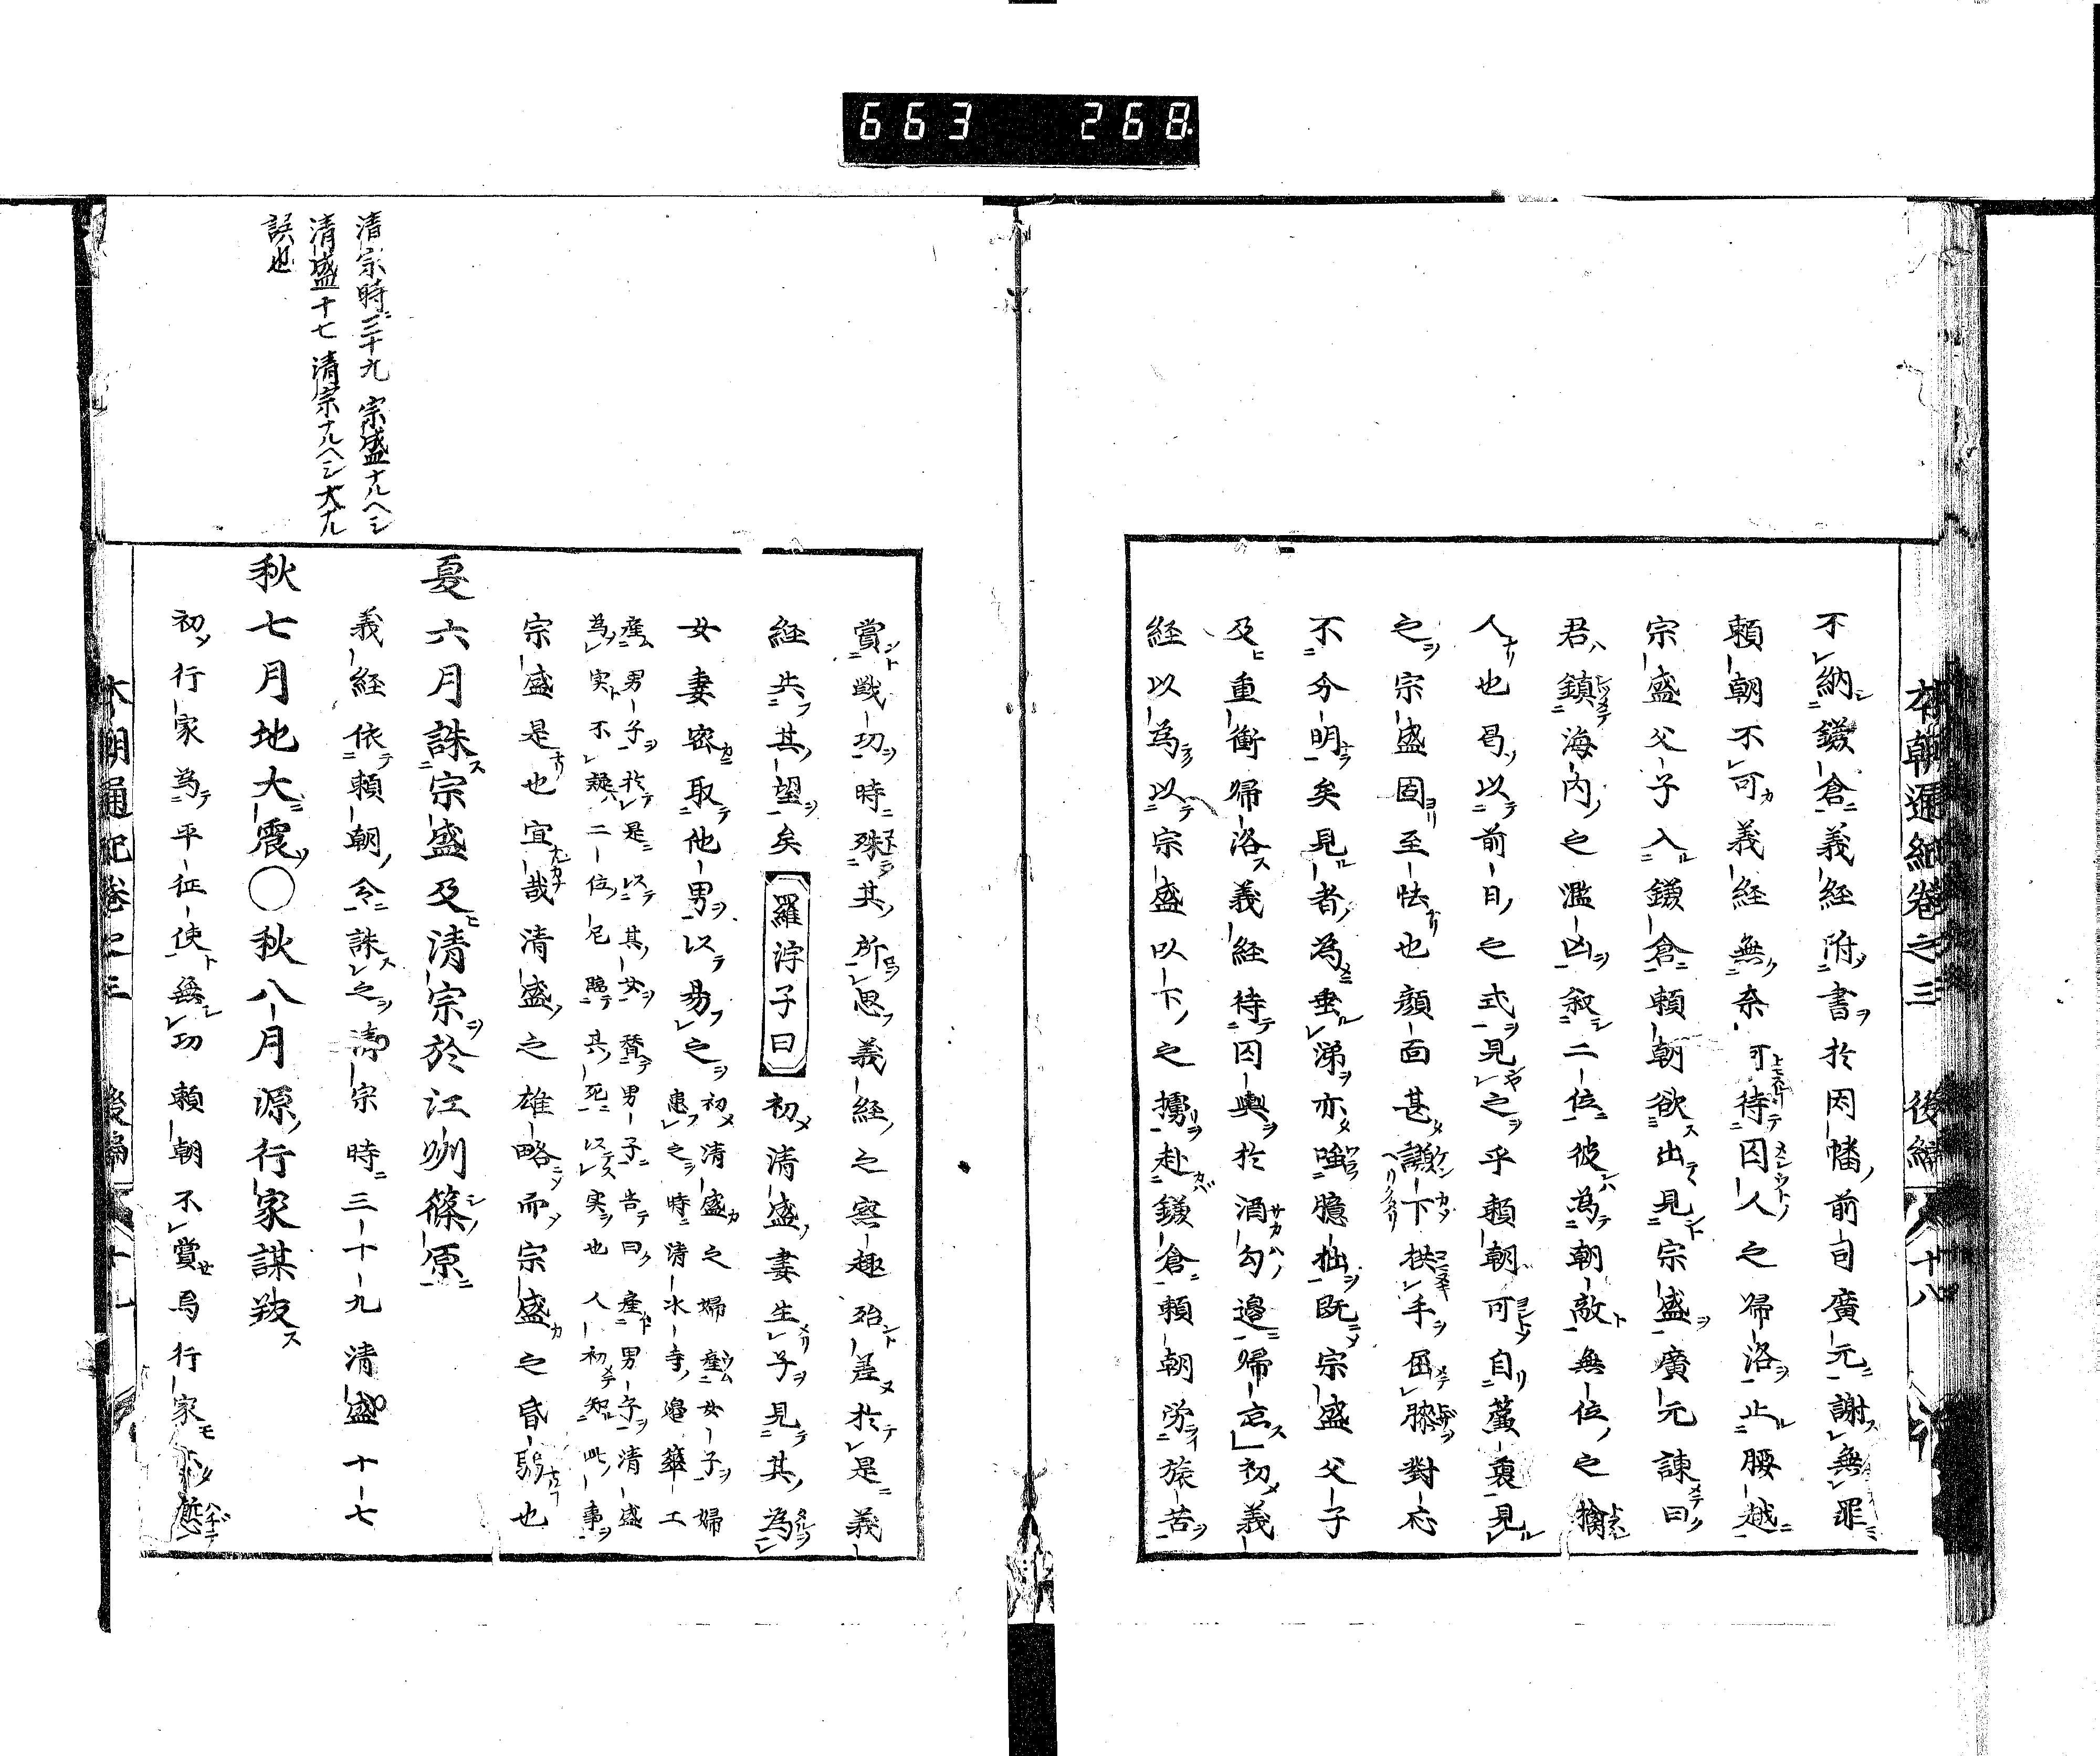 663 268
本朝通紀巻之三 後編 十八
不納鎌倉義経附書於因幡前司廣元謝無罪
頼朝不可義経無奈可待囚人之帰洛止腰越
宗盛父子入鎌倉頼朝欲出見宗盛廣元諌曰
君鎮海内之濫凶叙二位彼為朝敵無位之擒
人也曷以前日之式見之乎頼朝可自簾裏見
之宗盛固至怯也顔面甚謙下拱手屈膝對応
不分明矣見者為垂涕亦嗤臆拙既宗盛父子
及重衡帰洛義経待囚輿於酒匂邉帰京初義
経以為以宗盛以下之擄赴鎌倉頼朝労旅苦
賞戦功時殊其所思義経之寃趣殆差於是義
経共其望矣 羅浮子曰 初清盛妻生子見其為
女妻密取他男以易之 初清盛之婦産女子婦
患之時清水寺邉傘工
産男子於是以其女替男子告曰産男子清盛
為実不疑二位尼臨其死以実也人初知此事
宗盛是也宜哉清盛之雄略而宗盛之昏弱也
夏六月誅宗盛及清宗於江州篠原
義経依頼朝令誅之清宗時三十九清盛十七
秋七月地大震〇秋八月源行家謀叛
初行家為平征使無功頼朝不賞焉行家
本朝通紀巻之三 後編 十九
清宗時三十九 宗盛ナルヘシ
清盛十七 清宗ナルヘシ 大ナル
誤也